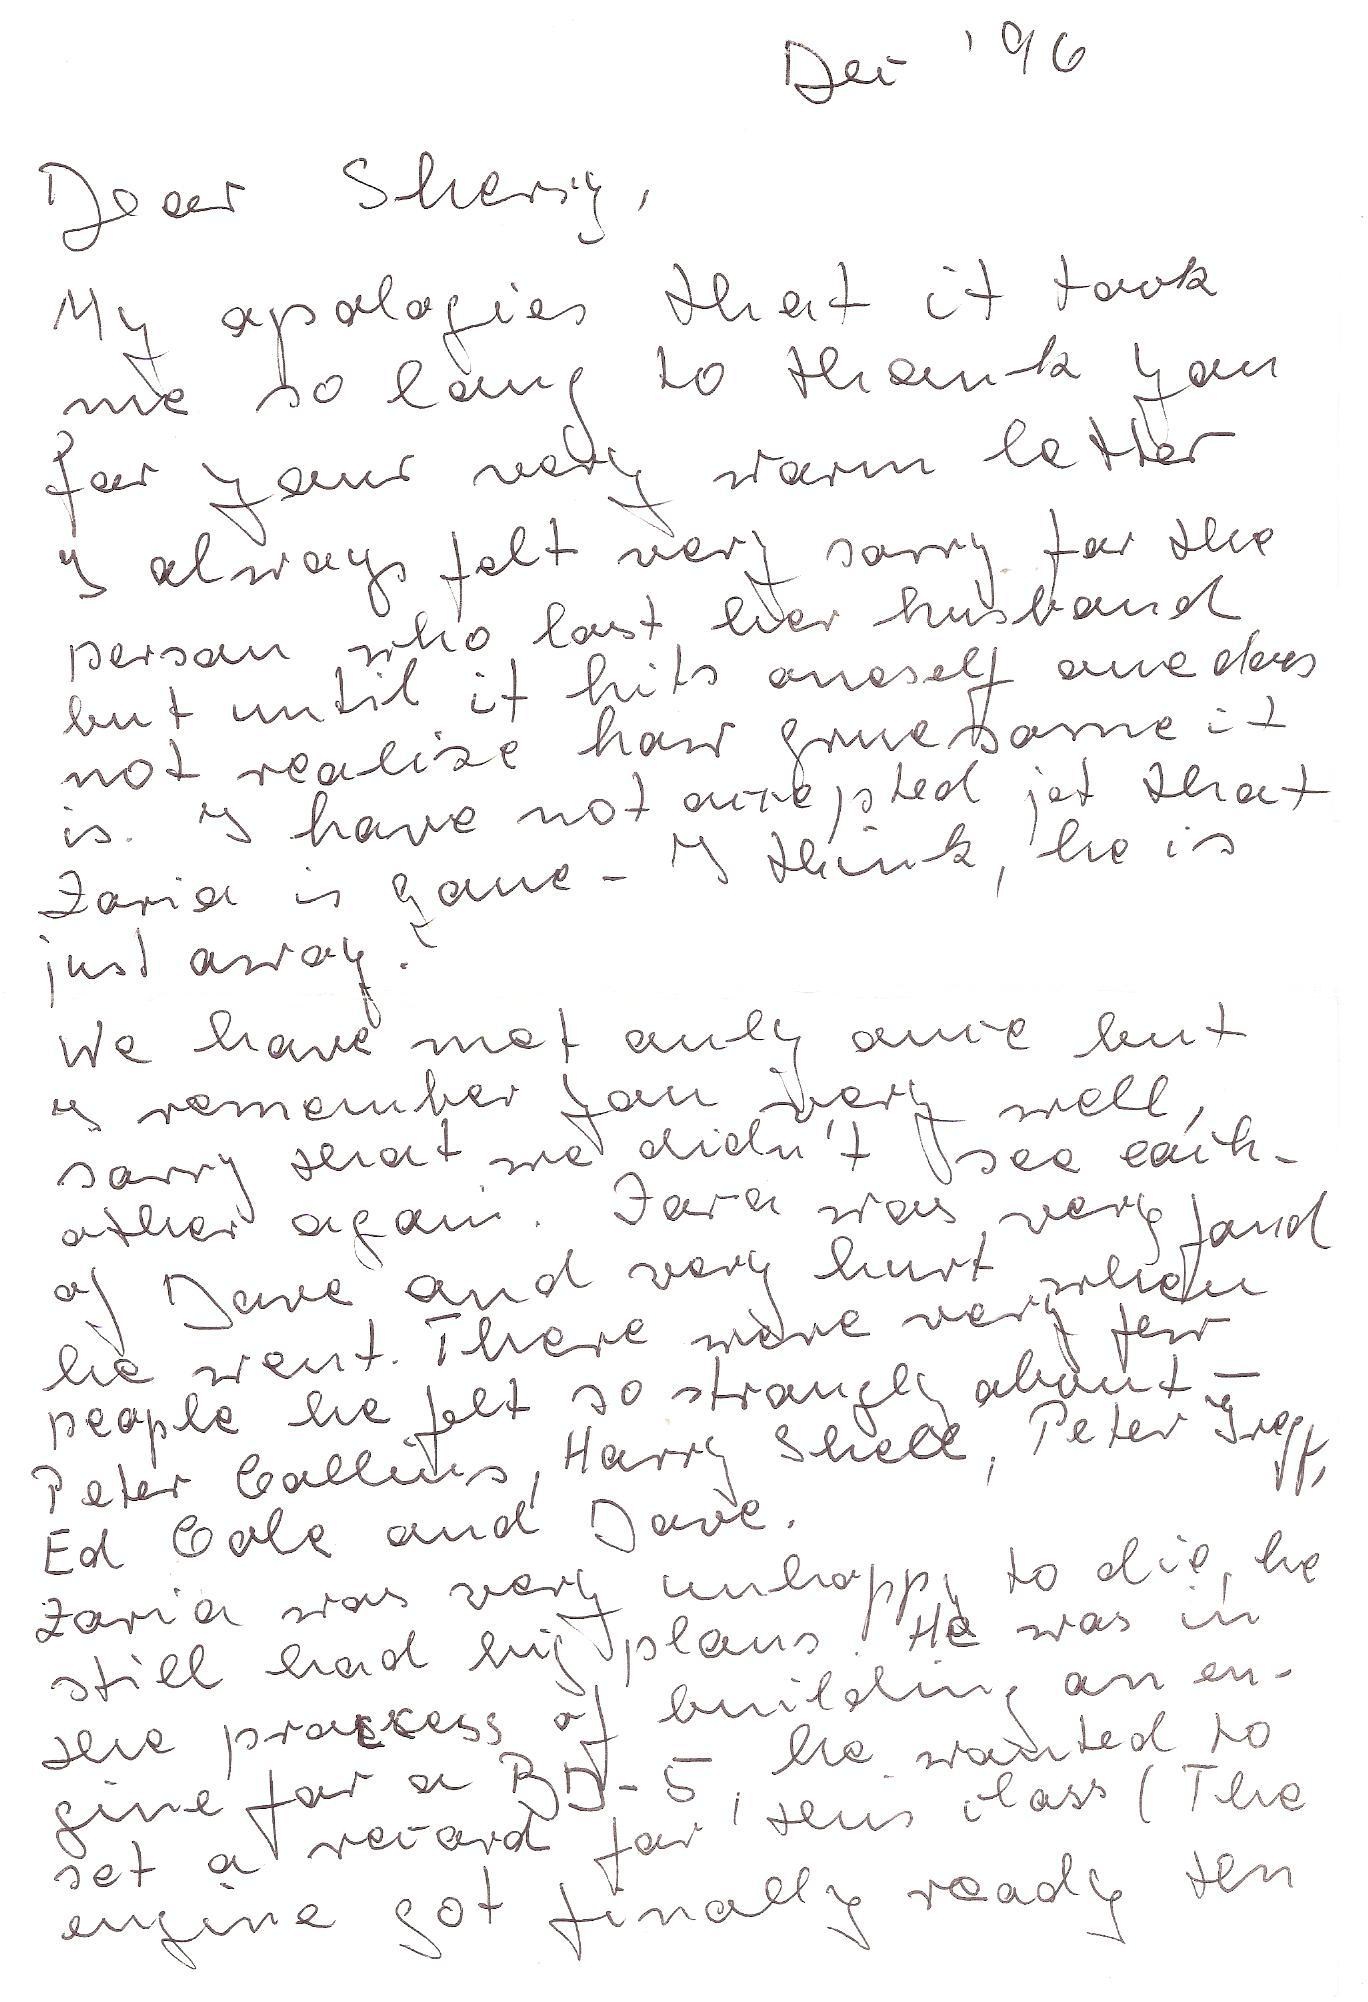 Dec '96
Dear Sherry,
My apologies that it took
me so long to thank you
for your very warm letter
I always felt very sorry for the
person who lost her husband
but until it hits oneself one does
not realize how gruesome it
is. I have not accepted jet that
Zoria is gone - I think, he is
just away!
We have met only once but
I remember you very well,
sorry that we didn't see each-
other again. Zora was very fond
of Dave and very hurt when
he went. There were very few
people he felt so strongly about -
Peter Collins, Harry Shell, Peter Gregg,
Ed Cole and Dave.
Zoria was very unhappy to die, he
still had big plans! He was in
the process of building an en-
gine for a BD-5, he wanted to
set a record for this class (The
engine got finally ready ten